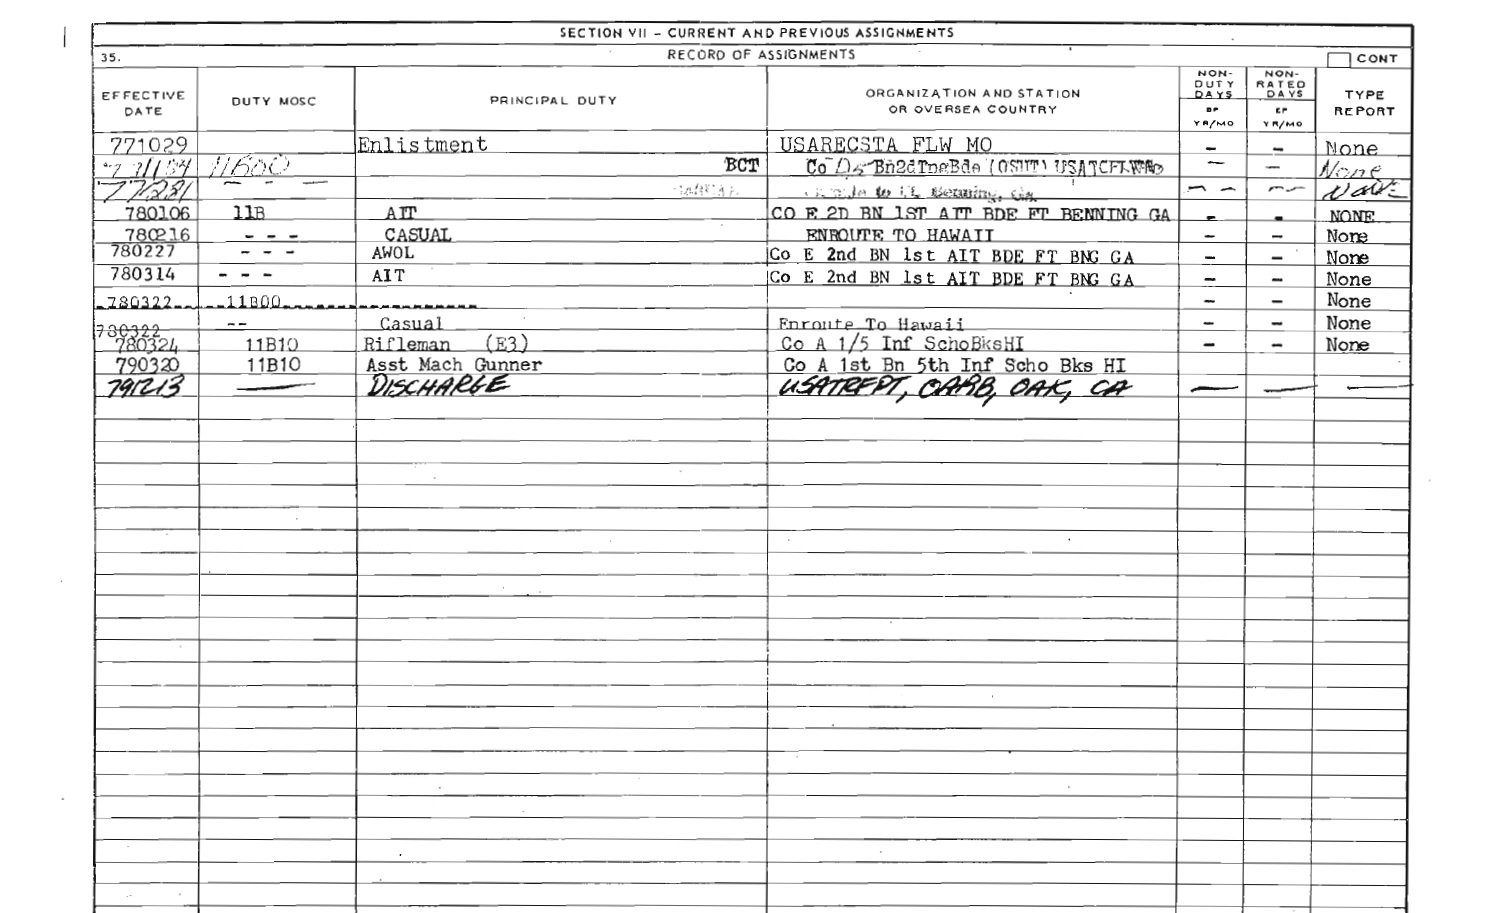 SECTION VII – CURRENT AND PREVIOUS ASSIGNMENTS
35. RECORD OF ASSIGNMENTS CONT
EFFECTIVE DATE DUTY MOSC PRINCIPAL DUTY ORGANIZATION AND STATION OR OVERSEA COUNTRY NON-DUTY DAYS EP YR/MO NON-RATED DAYS EP YR/MO TYPE REPORT
771029 Enlistment USARECSTA FLW MO - - None
11B00 BCT Co Bn2dTngBde (OSUT) USATCFLWMo — — None
- - — to Ft. Benning, Ga — — — — None
780106 11B AIT CO E 2D BN 1ST AIT BDE FT BENNING GA - - NONE
780216 - - - CASUAL ENROUTE TO HAWAII - - None
780227 - - - AWOL Co E 2nd BN 1st AIT BDE FT BNG GA - - None
780314 - - - AIT Co E 2nd BN 1st AIT BDE FT BNG GA - - None
780322 11B00 - - None
780322 -- Casual Enroute To Hawaii - - None
780324 11B10 Rifleman (E3) Co A 1/5 Inf SchoBksHI - - None
790320 11B10 Asst Mach Gunner Co A 1st Bn 5th Inf Scho Bks HI
791213 — DISCHARGE USATRFPT, OARB, OAK, CA — — —